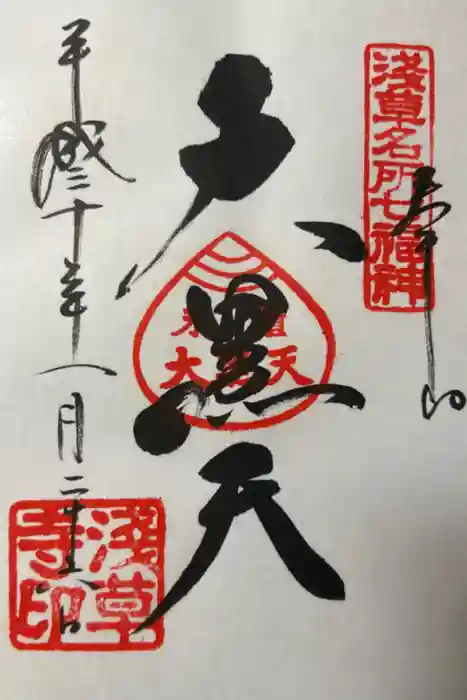 淺草名所七福神
奉拝
大黒天
平成三十年一月二十六日
淺草寺印